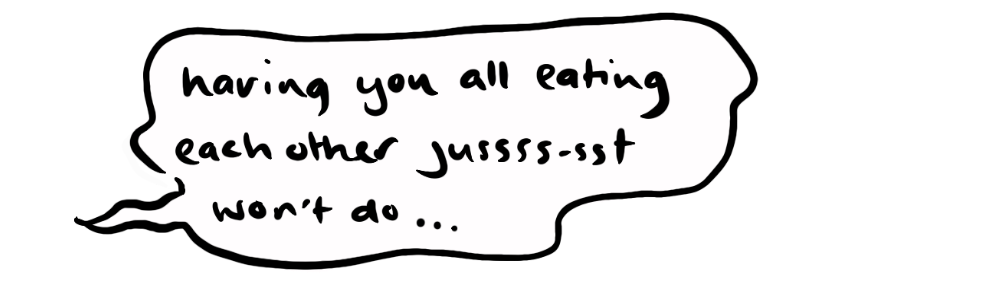 having you all eating
each other jussss-sst
won't do...